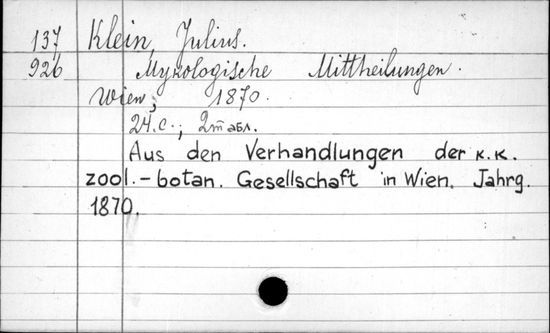 137 Klein, Julius.
926 Mykologische Mittheilungen.
Wien, 1870.
24.c.; 2 табл.
Aus den Verhandlungen der K.K.
zool.-botan. Gesellschaft in Wien. Jahrg.
1870.